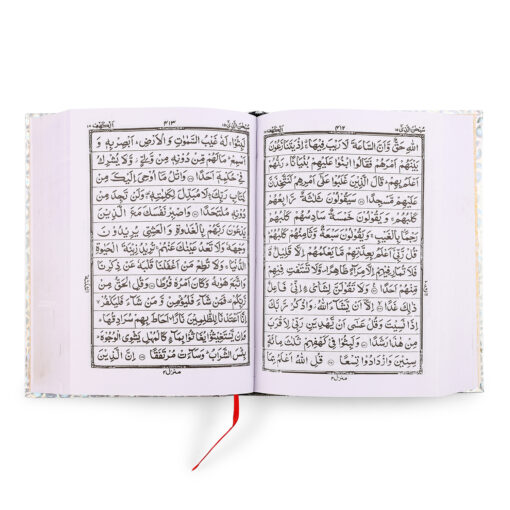 سبحن الذی ١٥ ٤١٢ الکهف ١٨
اللّٰهِ حَقٌّ وَّاَنَّ السَّاعَةَ لَا رَیْبَ فِیْهَا ۚ اِذْ یَتَنَازَعُوْنَ
بَیْنَهُمْ اَمْرَهُمْ فَقَالُوا ابْنُوْا عَلَیْهِمْ بُنْیَانًا ؕ رَبُّهُمْ
اَعْلَمُ بِهِمْ ؕ قَالَ الَّذِیْنَ غَلَبُوْا عَلٰۤی اَمْرِهِمْ لَنَتَّخِذَنَّ
عَلَیْهِمْ مَّسْجِدًا ۝ سَیَقُوْلُوْنَ ثَلٰثَةٌ رَّابِعُهُمْ
كَلْبُهُمْ ۚ وَیَقُوْلُوْنَ خَمْسَةٌ سَادِسُهُمْ كَلْبُهُمْ
رَجْمًۢا بِالْغَیْبِ ۚ وَیَقُوْلُوْنَ سَبْعَةٌ وَّثَامِنُهُمْ كَلْبُهُمْ ؕ
قُلْ رَّبِّیْۤ اَعْلَمُ بِعِدَّتِهِمْ مَّا یَعْلَمُهُمْ اِلَّا قَلِیْلٌ ۫
فَلَا تُمَارِ فِیْهِمْ اِلَّا مِرَآءً ظَاهِرًا ۪ وَّلَا تَسْتَفْتِ فِیْهِمْ
مِّنْهُمْ اَحَدًا ۝ وَلَا تَقُوْلَنَّ لِشَایْءٍ اِنِّیْ فَاعِلٌ
ذٰلِكَ غَدًا ۝ اِلَّاۤ اَنْ یَّشَآءَ اللّٰهُ ؗ وَاذْكُرْ رَّبَّكَ
اِذَا نَسِیْتَ وَقُلْ عَسٰۤی اَنْ یَّهْدِیَنِ رَبِّیْ لِاَقْرَبَ
مِنْ هٰذَا رَشَدًا ۝ وَلَبِثُوْا فِیْ كَهْفِهِمْ ثَلٰثَ مِائَةٍ
سِنِیْنَ وَازْدَادُوْا تِسْعًا ۝ قُلِ اللّٰهُ اَعْلَمُ بِمَا
سبحن الذی ١٥ ٤١٣ الکهف ١٨
لَبِثُوْا ۚ لَهٗ غَیْبُ السَّمٰوٰتِ وَالْاَرْضِ ؕ اَبْصِرْ بِهٖ وَ
اَسْمِعْ ؕ مَا لَهُمْ مِّنْ دُوْنِهٖ مِنْ وَّلِیٍّ ؗ وَّلَا یُشْرِكُ
فِیْ حُكْمِهٖۤ اَحَدًا ۝ وَاتْلُ مَاۤ اُوْحِیَ اِلَیْكَ مِنْ
كِتَابِ رَبِّكَ ؕ لَا مُبَدِّلَ لِكَلِمٰتِهٖ ۫ وَلَنْ تَجِدَ مِنْ
دُوْنِهٖ مُلْتَحَدًا ۝ وَاصْبِرْ نَفْسَكَ مَعَ الَّذِیْنَ
یَدْعُوْنَ رَبَّهُمْ بِالْغَدٰوةِ وَالْعَشِیِّ یُرِیْدُوْنَ
وَجْهَهٗ وَلَا تَعْدُ عَیْنٰكَ عَنْهُمْ ۚ تُرِیْدُ زِیْنَةَ الْحَیٰوةِ
الدُّنْیَا ۚ وَلَا تُطِعْ مَنْ اَغْفَلْنَا قَلْبَهٗ عَنْ ذِكْرِنَا
وَاتَّبَعَ هَوٰىهُ وَكَانَ اَمْرُهٗ فُرُطًا ۝ وَقُلِ الْحَقُّ مِنْ
رَّبِّكُمْ ۫ فَمَنْ شَآءَ فَلْیُؤْمِنْ وَّمَنْ شَآءَ فَلْیَكْفُرْ ۙ
اِنَّاۤ اَعْتَدْنَا لِلظّٰلِمِیْنَ نَارًا ۙ اَحَاطَ بِهِمْ سُرَادِقُهَا ؕ
وَاِنْ یَّسْتَغِیْثُوْا یُغَاثُوْا بِمَآءٍ كَالْمُهْلِ یَشْوِی الْوُجُوْهَ ؕ
بِئْسَ الشَّرَابُ ؕ وَسَآءَتْ مُرْتَفَقًا ۝ اِنَّ الَّذِیْنَ